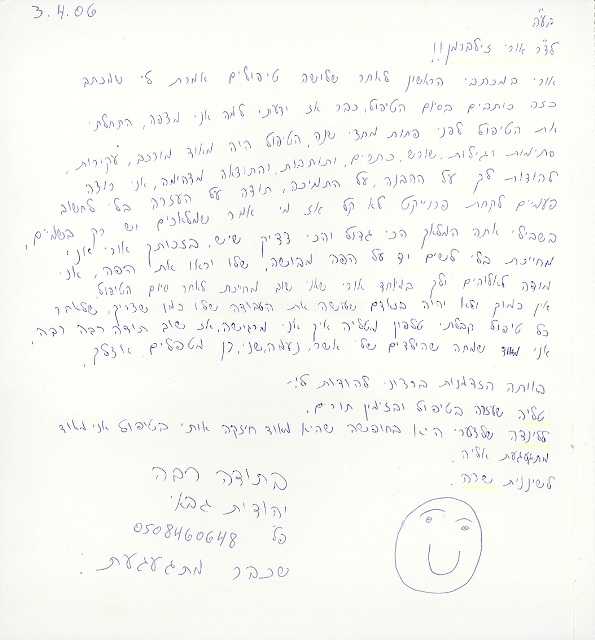 3.4.06
בע"ה
לד"ר אורי זילברמן!!
אורי במכתבי הראשון לאחר שלושה טיפולים אמרת לי שמכתב
כזה כותבים בסיום הטיפול, כבר אז ידעתי למה אני מצפה, התחלתי
את הטיפול לפני פחות מחצי שנה, הטיפול היה מאוד מורכב, עקירות,
סתימות רגילות, שורש, כתרים, ותותבות, והתוצאה מדהימה, אני רוצה
להודות לך על ההבנה, על התמיכה, תודה על העזרה בלי לחשוב
פעמיים לקחת פרוייקט לא קל אז מי אמר שמלאכים יש רק בשמיים,
בשבילי אתה המלאך הכי גדול והכי צדיק שיש, בזכותך אורי אני
מחייכת בלי לשים יד על הפה מבושה, שלו יראו את הפה, אני
מודה לאלוהים ולך במיוחד אורי שאני שוב מחייכת לאחר סיום הטיפול
אין כמוך ולא יהיה בנאדם שעושה את העבודה שלו כמו שצריך, שלאחר
כל טיפול קבלתי טלפון מטליה איך אני מרגישה, אז שוב תודה רבה רבה.
אני מאוד שמחה שהילדים שלי אשר, נעמה, שני, רן מטפלים אצלך.
באותה הזדמנות ברצוני להודות ל:-
טליה שעזרה בטיפול ובזימון תורים.
ללינדה שלצערי היא בחופשה שהיא מאוד חיזקה אותי בטיפול אני מאוד
מתגעגעת אליה.
לשיננית שרה.
בתודה רבה
יהודית גבאי
פל 0508460648
שכבר מתגעגעת.